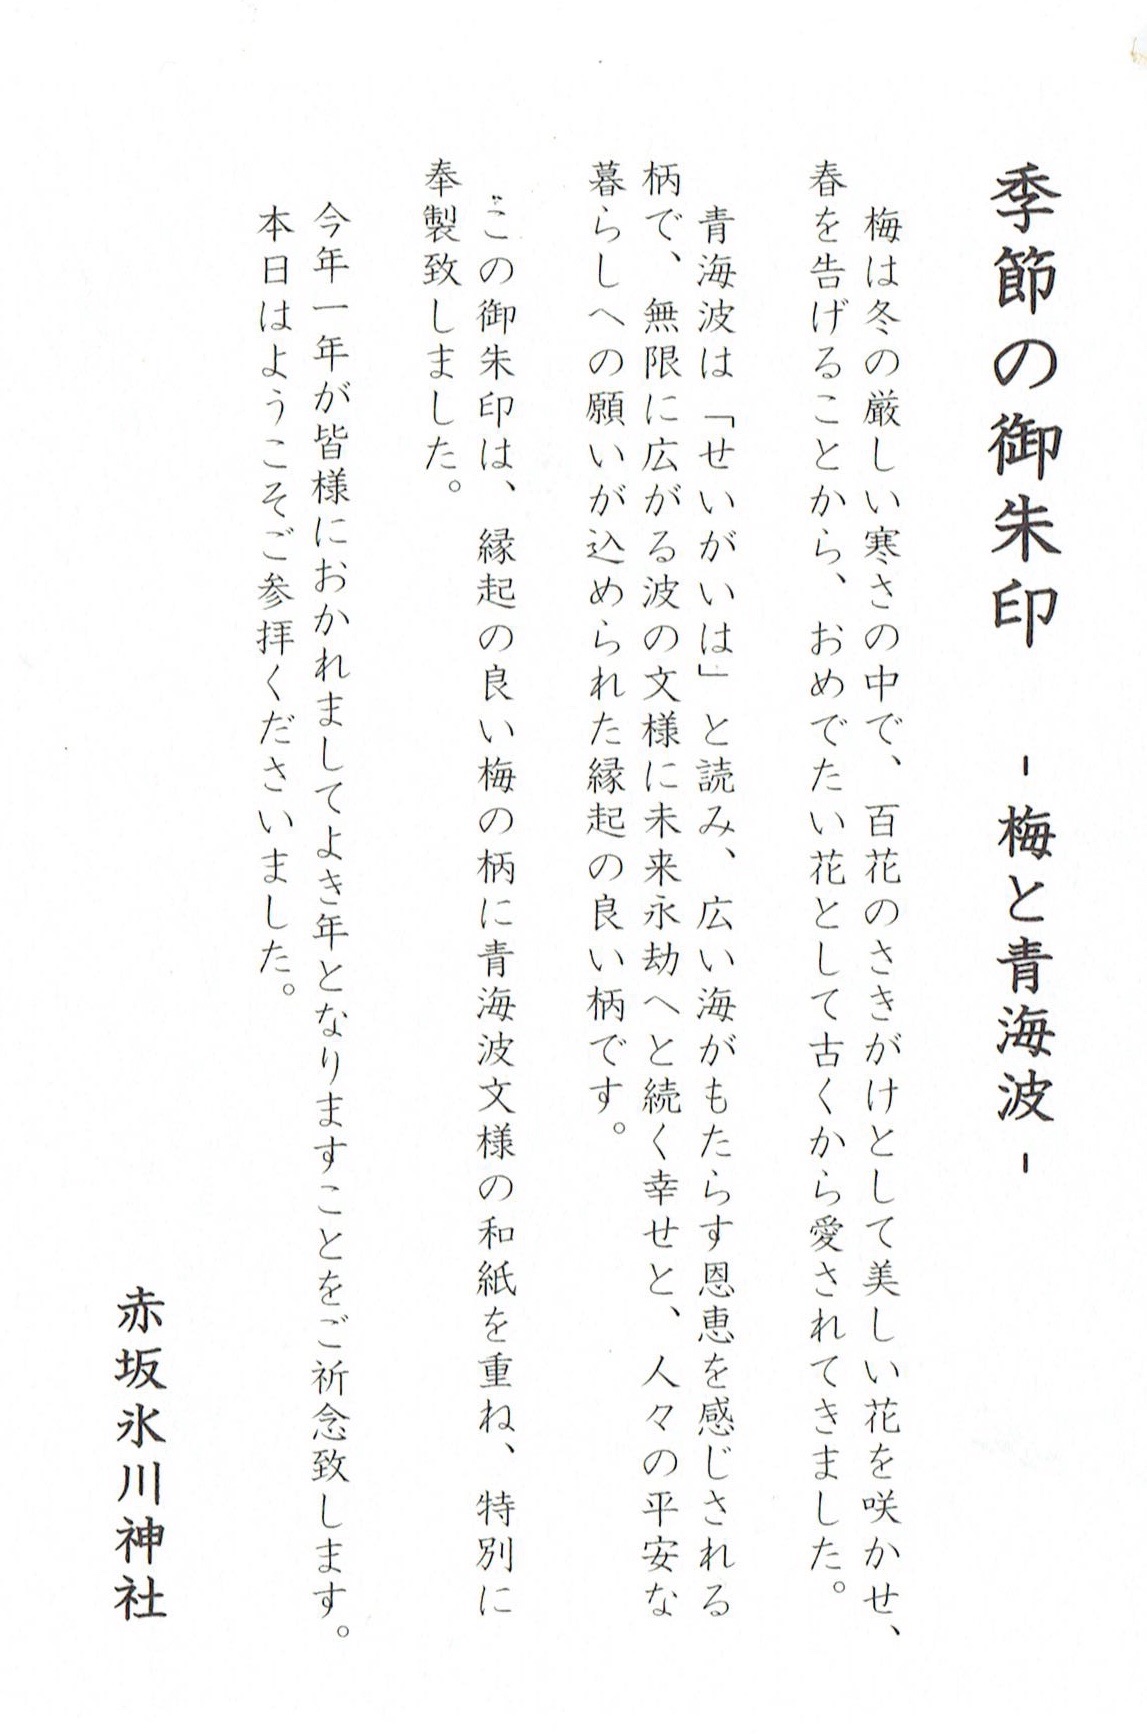 季節の御朱印　-梅と青海波-
梅は冬の厳しい寒さの中で、百花のさきがけとして美しい花を咲かせ、
春を告げることから、おめでたい花として古くから愛されてきました。
青海波は「せいがいは」と読み、広い海がもたらす恩恵を感じされる
柄で、無限に広がる波の文様に未来永劫へと続く幸せと、人々の平安な
暮らしへの願いが込められた縁起の良い柄です。
この御朱印は、縁起の良い梅の柄に青海波文様の和紙を重ね、特別に
奉製致しました。
今年一年が皆様におかれましてよき年となりますことをご祈念致します。
本日はようこそご参拝くださいました。
赤坂氷川神社